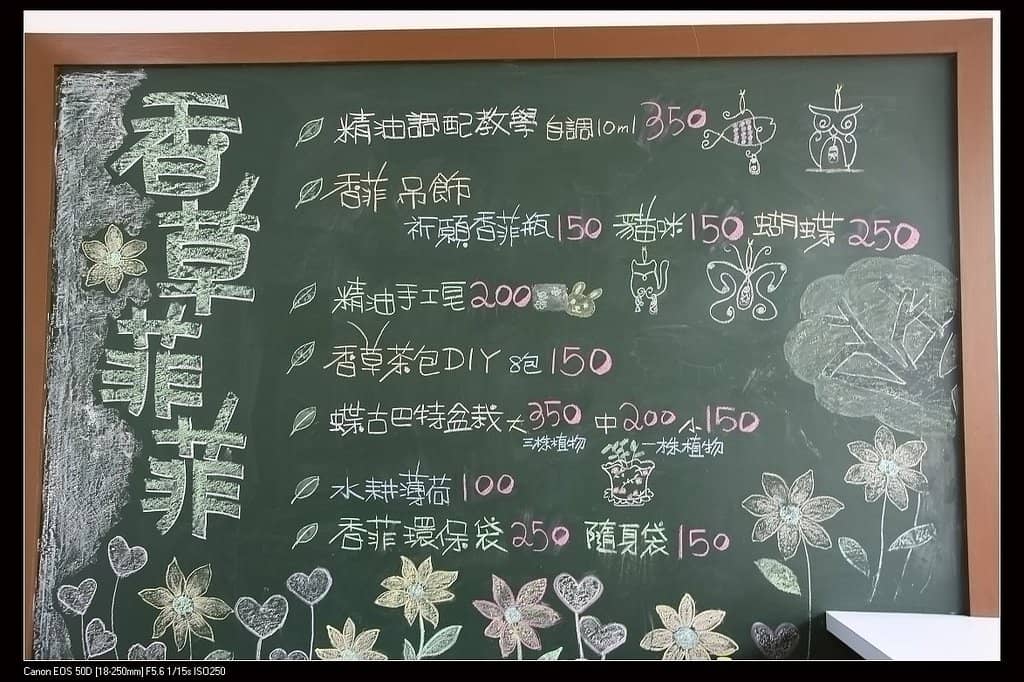 香草菲菲
精油調配教學 自調10ml 350
香菲吊飾
祈願香菲瓶150 貓咪150 蝴蝶250
精油手工皂200
香草茶包DIY 8包150
蝶古巴特盆栽 大350 中200 小150
三株植物 一株植物
水耕薄荷100
香菲環保袋250 隨身袋150
Canon EOS 50D [18-250mm] F5.6 1/15s ISO250